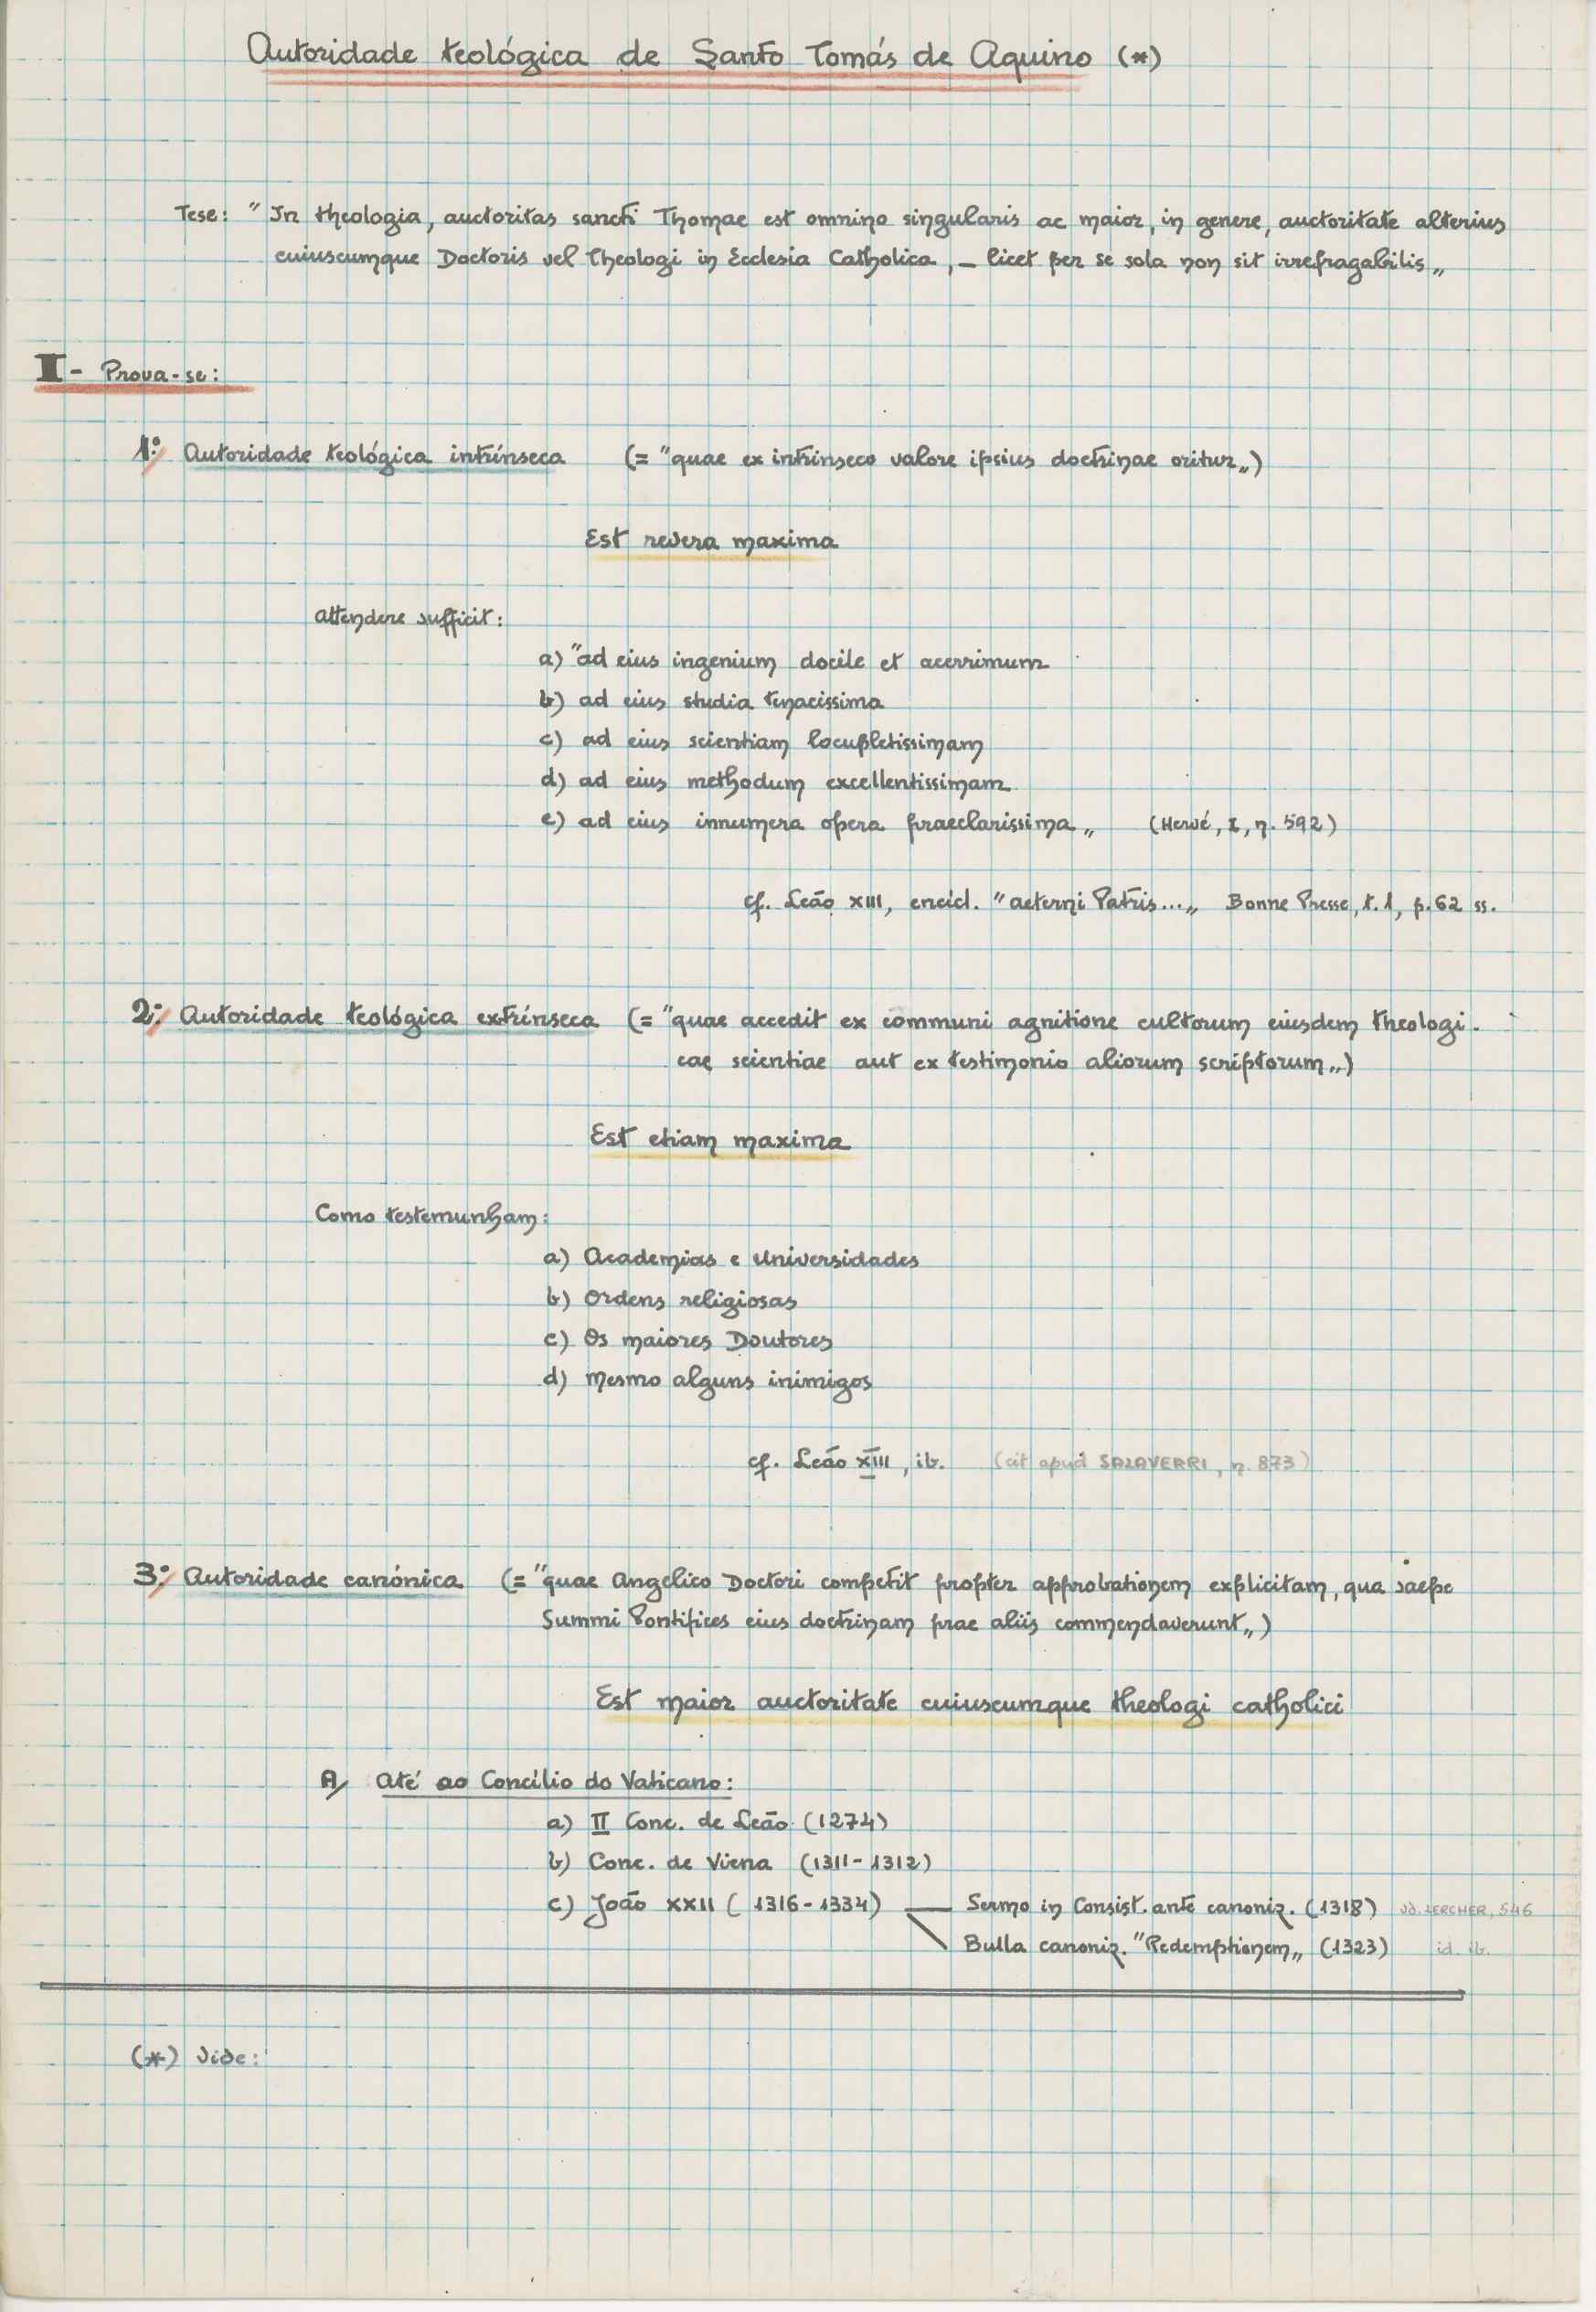 Autoridade teológica de Santo Tomás de Aquino (*)
Tese: "In theologia, auctoritas sancti Thomae est omnino singularis ac maior, in genere, auctoritate alterius
cuiuscumque Doctoris vel Theologi in Ecclesia Catholica, – licet per se sola non sit irrefragabilis„
I - Prova-se:
1º Autoridade teológica intrínseca (= "quae ex intrinseco valore ipsius doctrinae oritur„)
Est revera maxima
attendere sufficit:
a) "ad eius ingenium docile et acerrimum
b) ad eius studia tenacissima
c) ad eius scientiam locupletissimam
d) ad eius methodum excellentissimam
e) ad eius innumera opera praeclarissima„ (Hervé, I, n. 592)
cf. Leão XIII, encicl. "aeterni Patris...„ Bonne Presse, t.1, p.62 ss.
2º Autoridade teológica extrínseca (= "quae accedit ex communi agnitione cultorum eiusdem theologi-
cae scientiae aut ex testimonio aliorum scriptorum„)
Est etiam maxima
Como testemunham:
a) Academias e Universidades
b) Ordens religiosas
c) Os maiores Doutores
d) Mesmo alguns inimigos
cf. Leão XIII, ib. (cit apud SALAVERRI, n. 873)
3º Autoridade canónica (= "quae Angelico Doctori competit propter approbationem explicitam, qua saepe
Summi Pontifices eius doctrinam prae aliis commendaverunt„)
Est maior auctoritate cuiuscumque theologi catholici
A/ até ao Concílio do Vaticano:
a) II Conc. de Leão (1274)
b) Conc. de Viena (1311-1312)
c) João XXII (1316-1334) — Sermo in Consist. ante canoniz. (1318) vd. LERCHER, 546
Bulla canoniz. "Redemptionem„ (1323) id. ib.
(*) Vide: